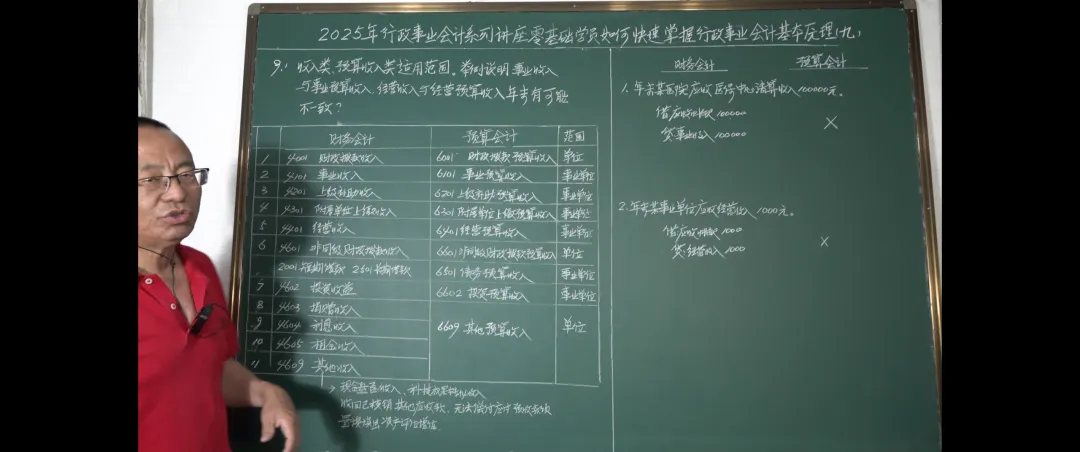 2025年行政事业会计系列讲座零基础学员如何快速掌握行政事业会计基本原理(九)
9.: 收入类、预算收入类适用范围。举例说明事业收入
与事业预算收入、经营收入与经营预算收入年末有可能
不一致？
财务会计 预算会计 范围
1 4001 财政拨款收入 6001 财政拨款预算收入 单位
2 4101 事业收入 6101 事业预算收入 事业单位
3 4201 上级补助收入 6201 上级补助预算收入 事业单位
4 4301 附属单位上缴收入 6301 附属单位上缴预算收入 事业单位
5 4401 经营收入 6401 经营预算收入 事业单位
6 4601 非同级财政拨款收入 6601 非同级财政拨款预算收入 单位
2001 短期借款 2501 长期借款 6501 债务预算收入 事业单位
7 4602 投资收益 6602 投资预算收入 事业单位
8 4603 捐赠收入
9 4604 利息收入 6609 其他预算收入 单位
10 4605 租金收入
11 4609 其他收入
→ 现金盘盈收入、科技成果转化收入
收回已核销其他应收款、无法偿付应付预收款项
置换换出资产评估增值
财务会计 预算会计
1. 年末某医院应收医保中心清算收入100000元。
借:应收账款 100000
贷:事业收入 100000 ×
2. 年末某事业单位应收经营收入1000元。
借:应收账款 1000
贷:经营收入 1000 ×